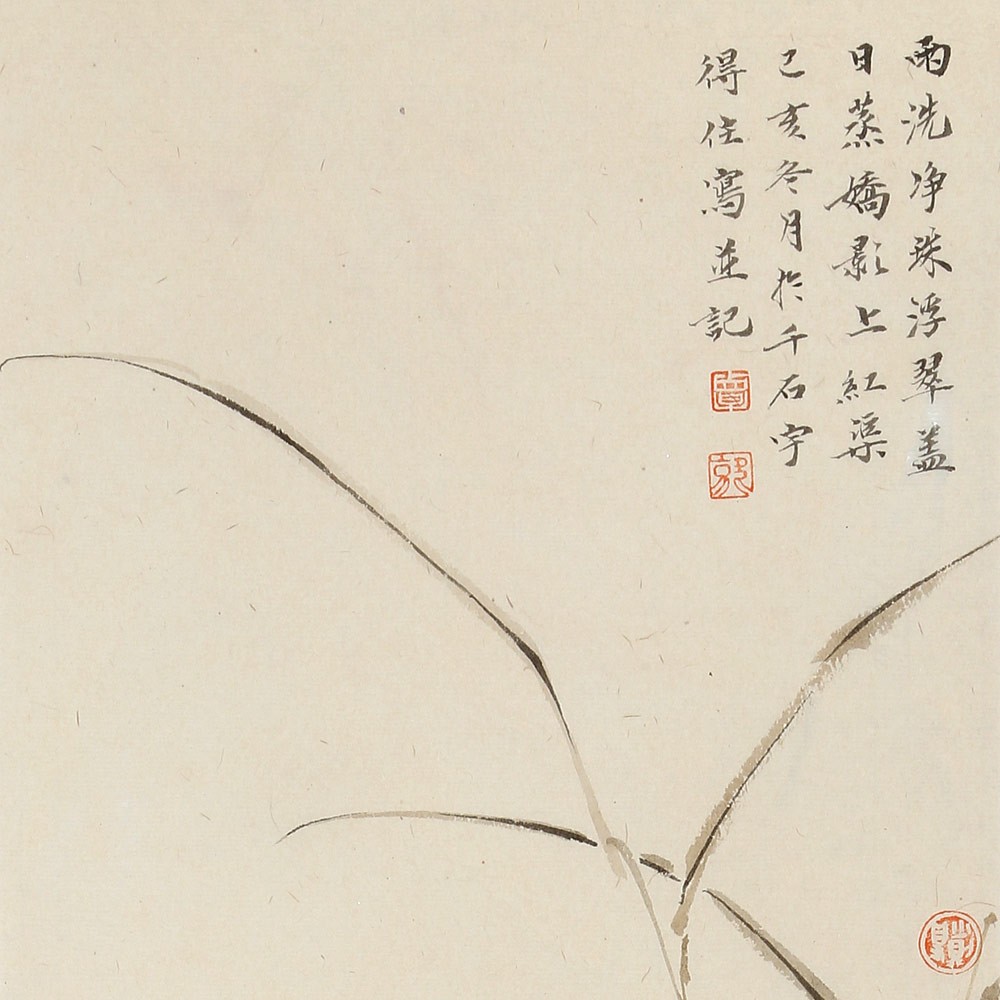 雨洗净珠浮翠盖
日蒸嬌影上紅渠
己亥冬月於千石宇
得住寫並記